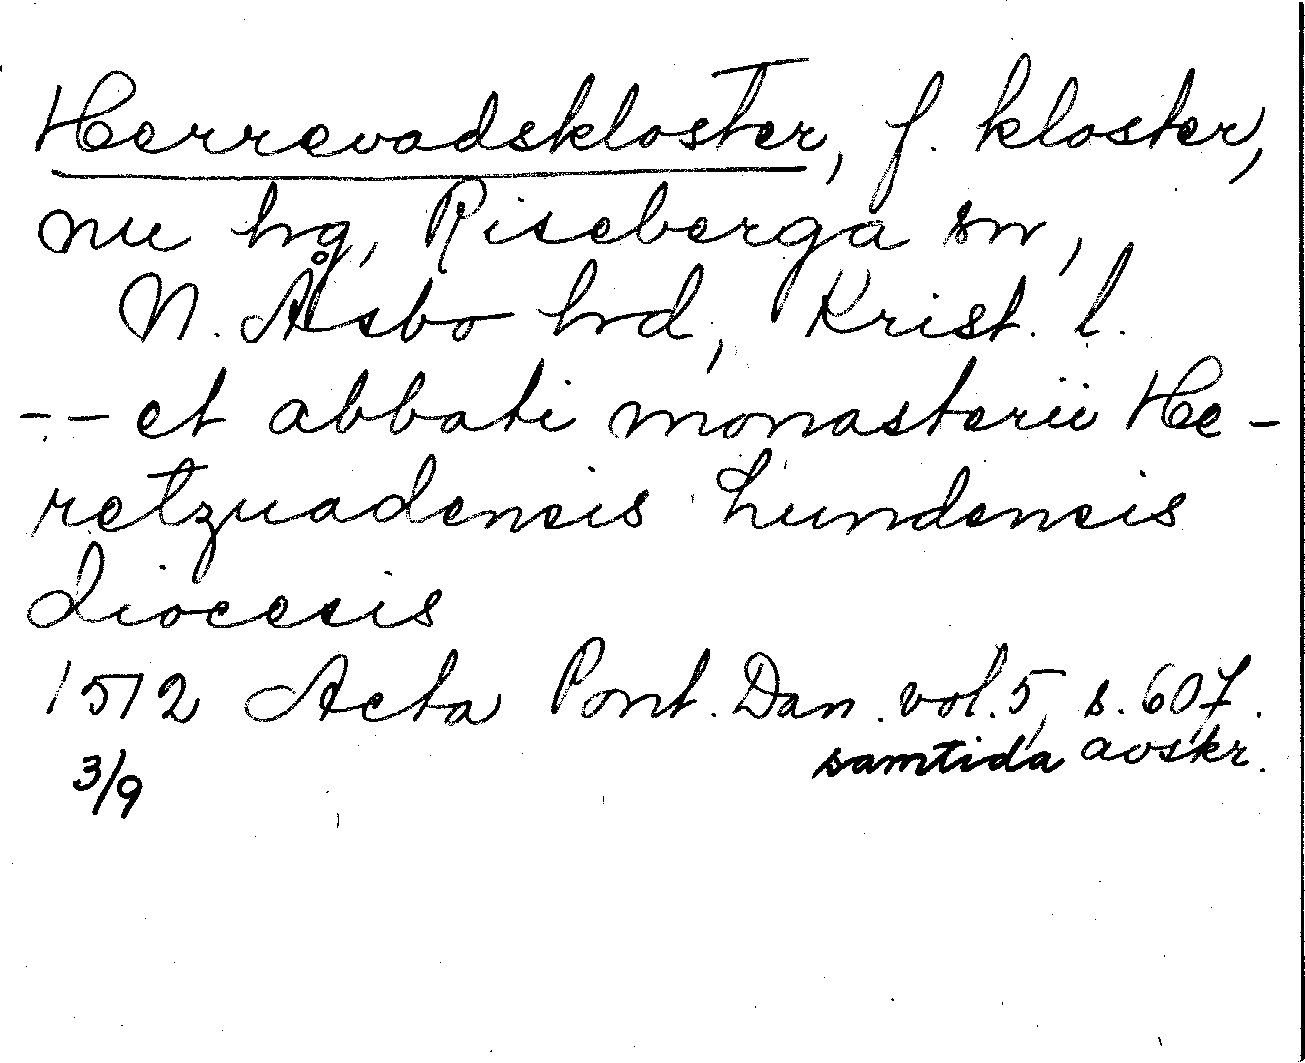 Herrevadskloster, f. kloster,
nu hg, Riseberga sn,
N. Åsbo hrd, Krist. l.
-- et abbati monasterii He-
retzuadensis Lundensis
diocesis
1512 Acta Pont. Dan. vol. 5, s. 607.
samtida avskr.
3/9